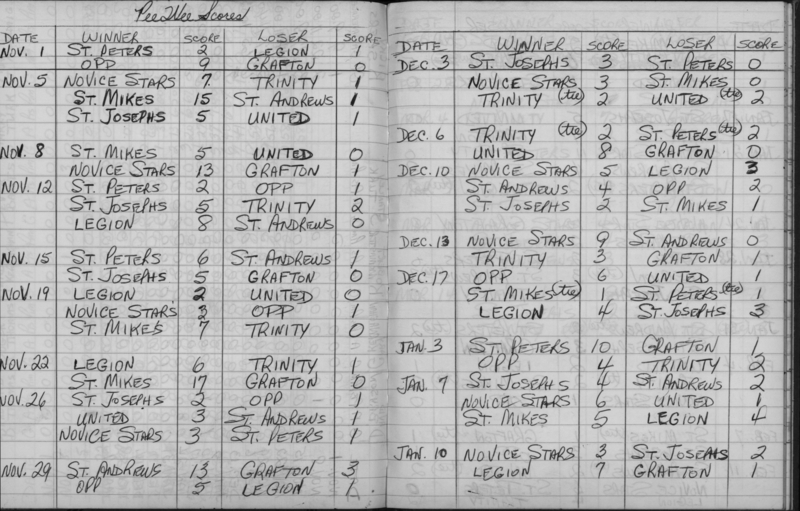 Pee Wee Scores
DATE WINNER SCORE LOSER SCORE
NOV. 1 ST. PETERS 2 LEGION 1
OPP 9 GRAFTON 0
NOV. 5 NOVICE STARS 7 TRINITY 1
ST. MIKES 15 ST. ANDREWS 1
ST. JOSEPHS 5 UNITED 1
NOV. 8 ST. MIKES 5 UNITED 0
NOVICE STARS 13 GRAFTON 1
NOV. 12 ST. PETERS 2 OPP 1
ST. JOSEPHS 5 TRINITY 2
LEGION 8 ST. ANDREWS 0
NOV. 15 ST. PETERS 6 ST. ANDREWS 1
ST. JOSEPHS 5 GRAFTON 0
NOV. 19 LEGION 2 UNITED 0
NOVICE STARS 3 OPP 1
ST. MIKES 7 TRINITY 0
NOV. 22 LEGION 6 TRINITY 1
ST. MIKES 17 GRAFTON 0
NOV. 26 ST. JOSEPHS 2 OPP 1
UNITED 3 ST. ANDREWS 1
NOVICE STARS 3 ST. PETERS 1
NOV. 29 ST. ANDREWS 13 GRAFTON 3
OPP 5 LEGION 1
DATE WINNER SCORE LOSER SCORE
DEC. 3 ST. JOSEPHS 3 ST. PETERS 0
NOVICE STARS 3 ST. MIKES 0
TRINITY (tie) 2 UNITED (tie) 2
DEC. 6 TRINITY (tie) 2 ST. PETERS (tie) 2
UNITED 8 GRAFTON 0
DEC. 10 NOVICE STARS 5 LEGION 3
ST. ANDREWS 4 OPP 2
ST. JOSEPHS 2 ST. MIKES 1
DEC. 13 NOVICE STARS 9 ST. ANDREWS 0
TRINITY 3 GRAFTON 1
DEC. 17 OPP 6 UNITED 1
ST. MIKES (tie) 1 ST. PETERS (tie) 1
LEGION 4 ST. JOSEPHS 3
JAN. 3 ST. PETERS 10 GRAFTON 1
OPP 4 TRINITY 2
JAN. 7 ST. JOSEPHS 4 ST. ANDREWS 2
NOVICE STARS 6 UNITED 1
ST. MIKES 5 LEGION 4
JAN. 10 NOVICE STARS 3 ST. JOSEPHS 2
LEGION 7 GRAFTON 1